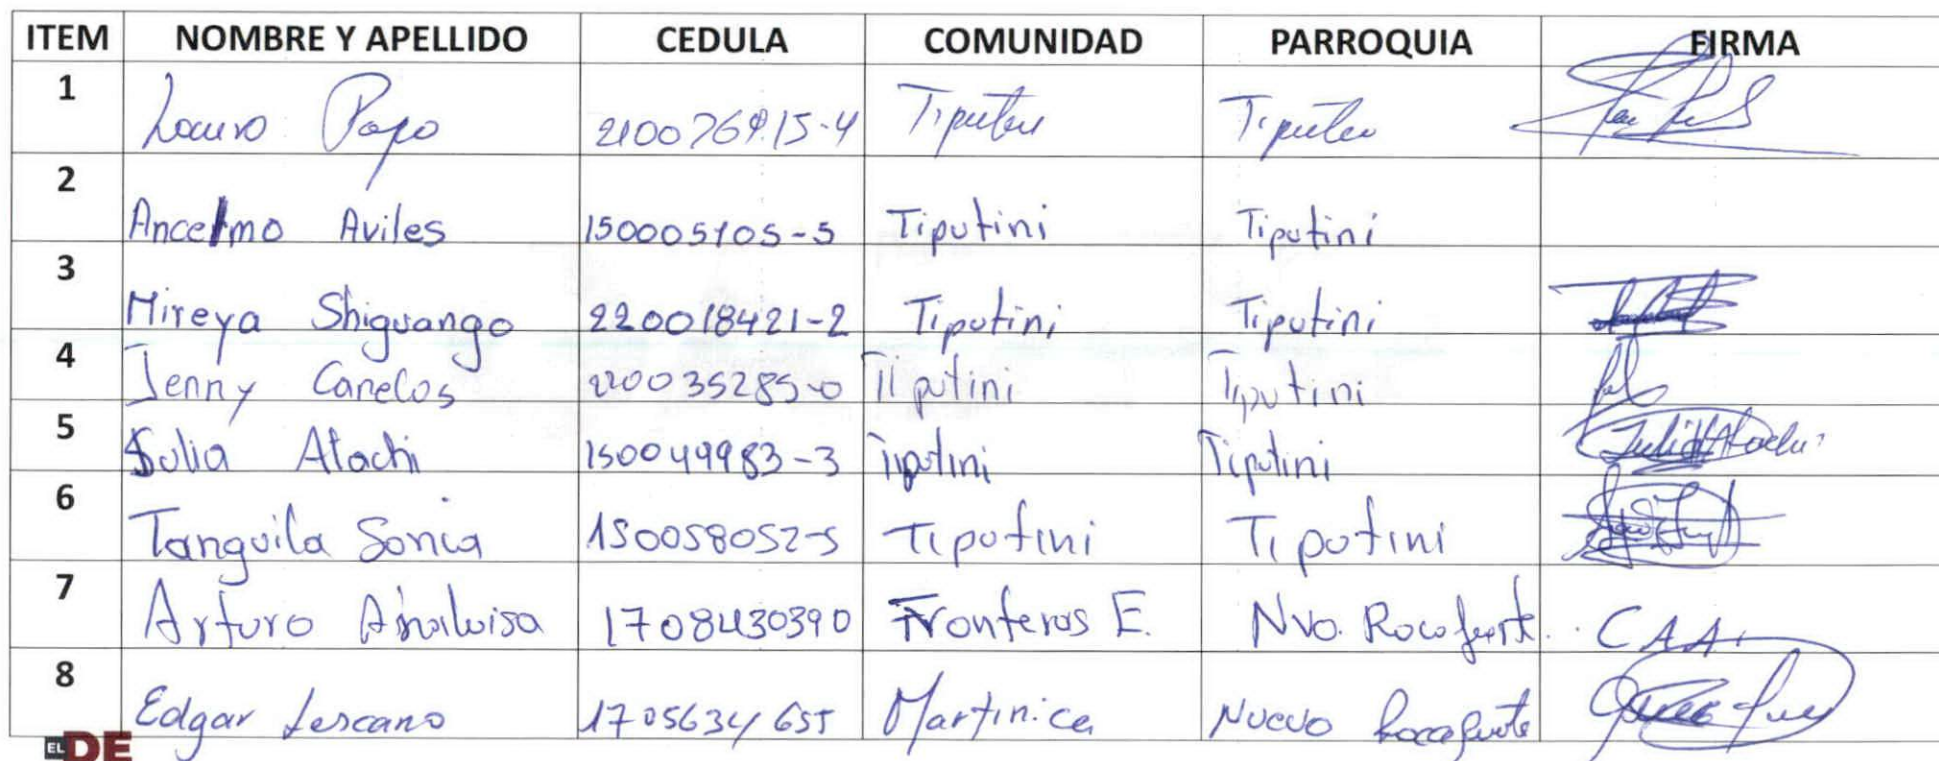 ITEM NOMBRE Y APELLIDO CEDULA COMUNIDAD PARROQUIA FIRMA
1 Lauro Papo
2 Ancelmo Aviles 150005105-5 Tiputini Tiputini
3 Mireya Shiguango 220018421-2 Tiputini Tiputini
4 Jenny Canelos 220035285-0 Tiputini Tiputini
5 Julia Atachi 150049983-3 Tiputini Tiputini Julia Atachi
6 Tanguila Sonia 150058052-5 Tiputini Tiputini
7 Arturo 1708430390 Fronteras E. Nvo. Rocafuerte. CAA.
8 Edgar Lescano 1705634655 Martinica Nuevo Rocafuerte
EL DE